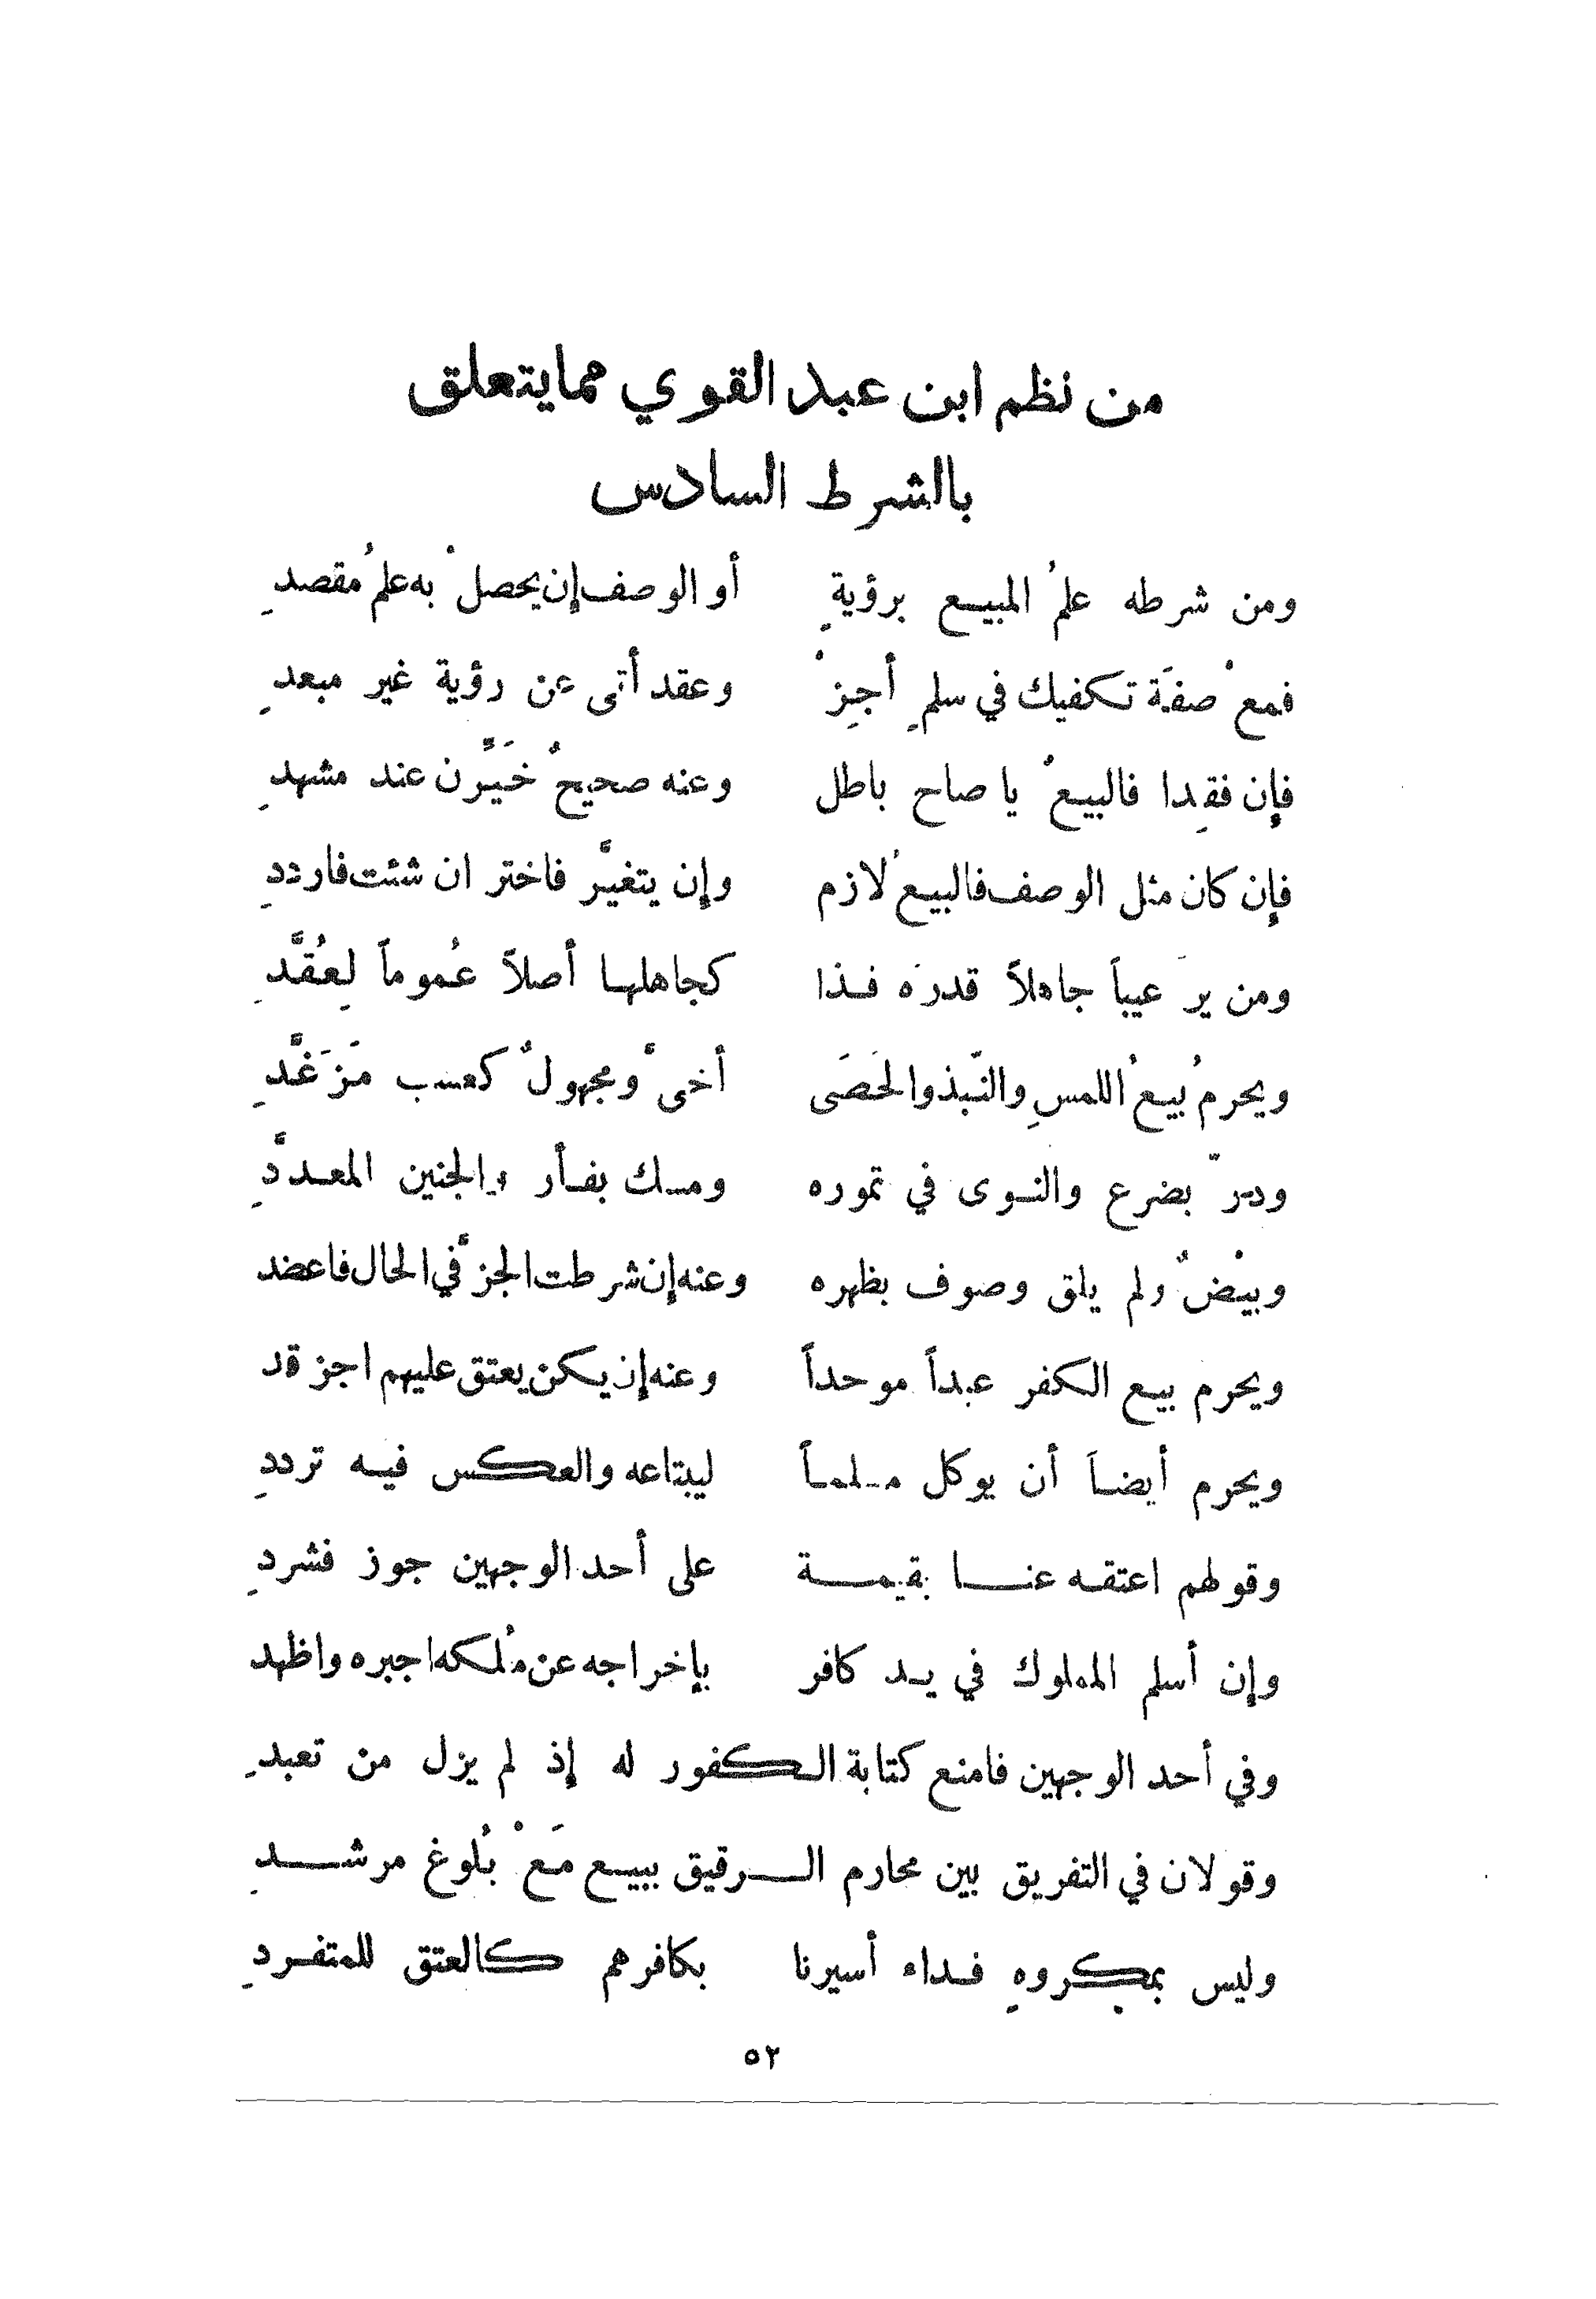 من نظم ابن عبد القوي مما يتعلق
بالشرط السادس
ومن شرطه علمُ المبيع برؤيةٍ أو الوصف إن يحصلْ به علمُ مقصدِ
فمعْ صفَة تكفيك في سلمٍ أجِزْ وعقد أتى عن رؤية غير مبعدِ
فإن فقِدا فالبيعُ يا صاح باطل وعنه صحيحٌ خَيِّرَن عند مشهدِ
فإن كان مثل الوصف فالبيعُ لازم وإن يتغيَّر فاختر ان شئت فارددِ
ومن يرَ عيباً جاهلاً قدرَه فذا كجاهلها أصلاً عُموماً لِعُقَّدِ
ويحرمُ بيعُ اللمسِ والنّبذ والحَصَى أخىَّ ومجهولٌ كعسب مَزَغَّدِ
ودرّ بضرع والنوى في تموره ومسك بفأر والجنين المعدَّدِ
وبيْضٌ ولم يلق وصوف بظهره وعنه إن شرطت الجزَّ في الحال فاعضد
ويحرم بيع الكفر عبداً موحداً وعنه إن يكن يعتق عليهم اجز قد
ويحرم أيضاً أن يوكل مسلماً ليبتاعه والعكس فيه ترددِ
وقولهم اعتقه عنا بقيمة على أحد الوجهين جوز فشردِ
وإن أسلم المملوك في يد كافر بإخراجه عن مُلكه اجبره واظهد
وفي أحد الوجهين فامنع كتابة الكفور له إذ لم يزل من تعبدِ
وقولان في التفريق بين محارم الرقيق ببيع مَعْ بُلوغ مرشدِ
وليس بمكروهٍ فداء أسيرنا بكافرهم كالعتق للمتفردِ
٥٢